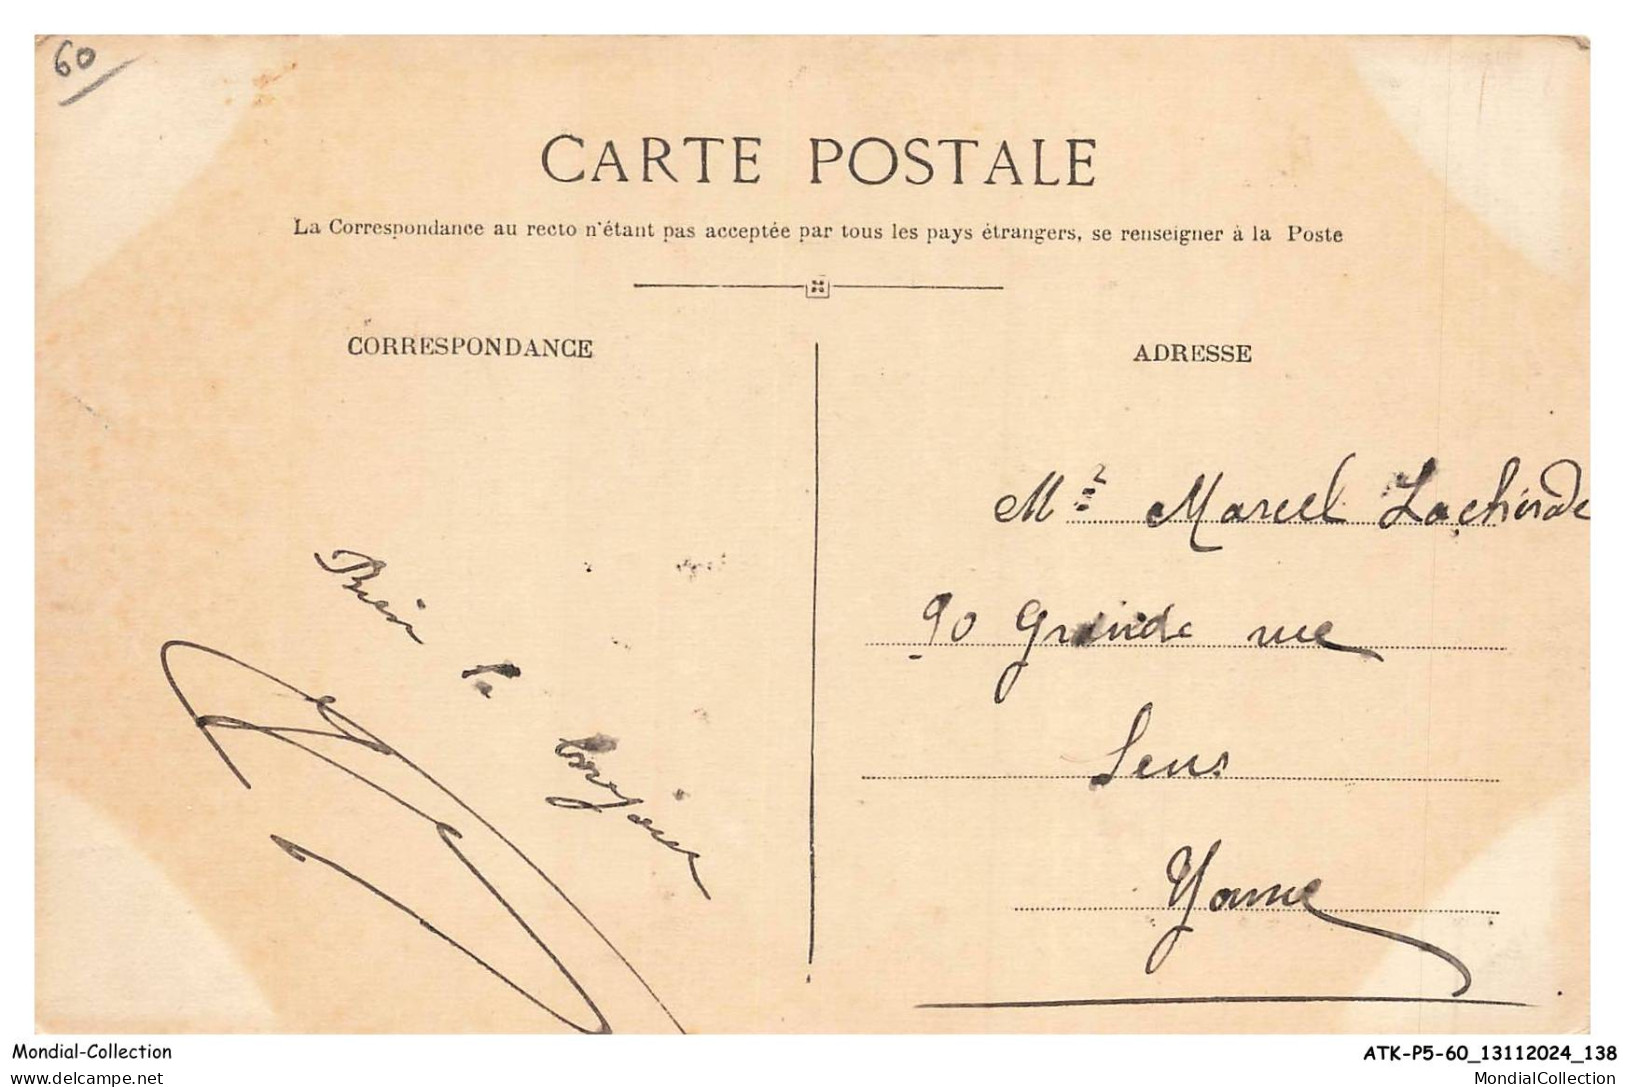 60
CARTE POSTALE
La Correspondance au recto n'étant pas acceptée par tous les pays étrangers, se renseigner à la Poste
CORRESPONDANCE
ADRESSE
Bien le bonjour
Mr Marcel
90 Grande rue
Sens
Yonne
Mondial-Collection
ATK-P5-60_13112024_138
delcampe.net
MondialCollection